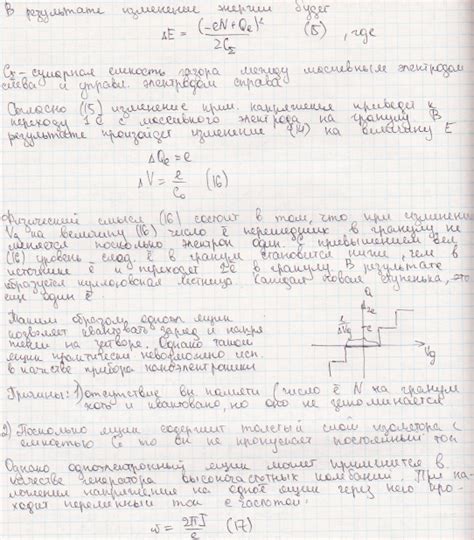 В результате изменение энергии будет
ΔE = (-eN + Qe)² / 2CΣ (15), где
CΣ - суммарная емкость зазора между массивным электродом
слева и управл. электродом справа
Согласно (15) изменение прил. напряжения приведет к
переходу 1ē с массивного электрода на гранулу. В
результате произойдет изменение (14) на величину E
ΔQe = e
ΔV = e/C₀ (16)
Физический смысл (16) состоит в том, что при изменении
Vg на величину (16) число ē перешедших в гранулу, не
меняется поскольку электрон один. С превышением вел.
(16) уровень след. ē в грануле становится ниже, чем в
источнике ē и переходит 2ē в гранулу. В результате
образуется кулоновская лестница. Каждая новая ступенька, это
еще один ē.
Таким образом одноэл. ящик
позволяет квантовать заряд и напря
жение на затворе. Однако такой
ящик практически невозможно исп.
в качестве прибора наноэлектроники
Q
2e
e
ΔVg
Vg
Причины: 1) отсутствие вн. памяти (число ē N на грануле
хоть и квантовано, но оно не запоминается
2) Поскольку ящик содержит толстый слой изолятора с
емкостью Cе то он не пропускает постоянный ток
Однако, одноэлектронный ящик может применятся в
качестве генератора высокочастотных колебаний. При на-
ложении напряжения на одноэл. ящик через него про-
ходит переменный ток с частотой:
ω = 2πJ/e (17)